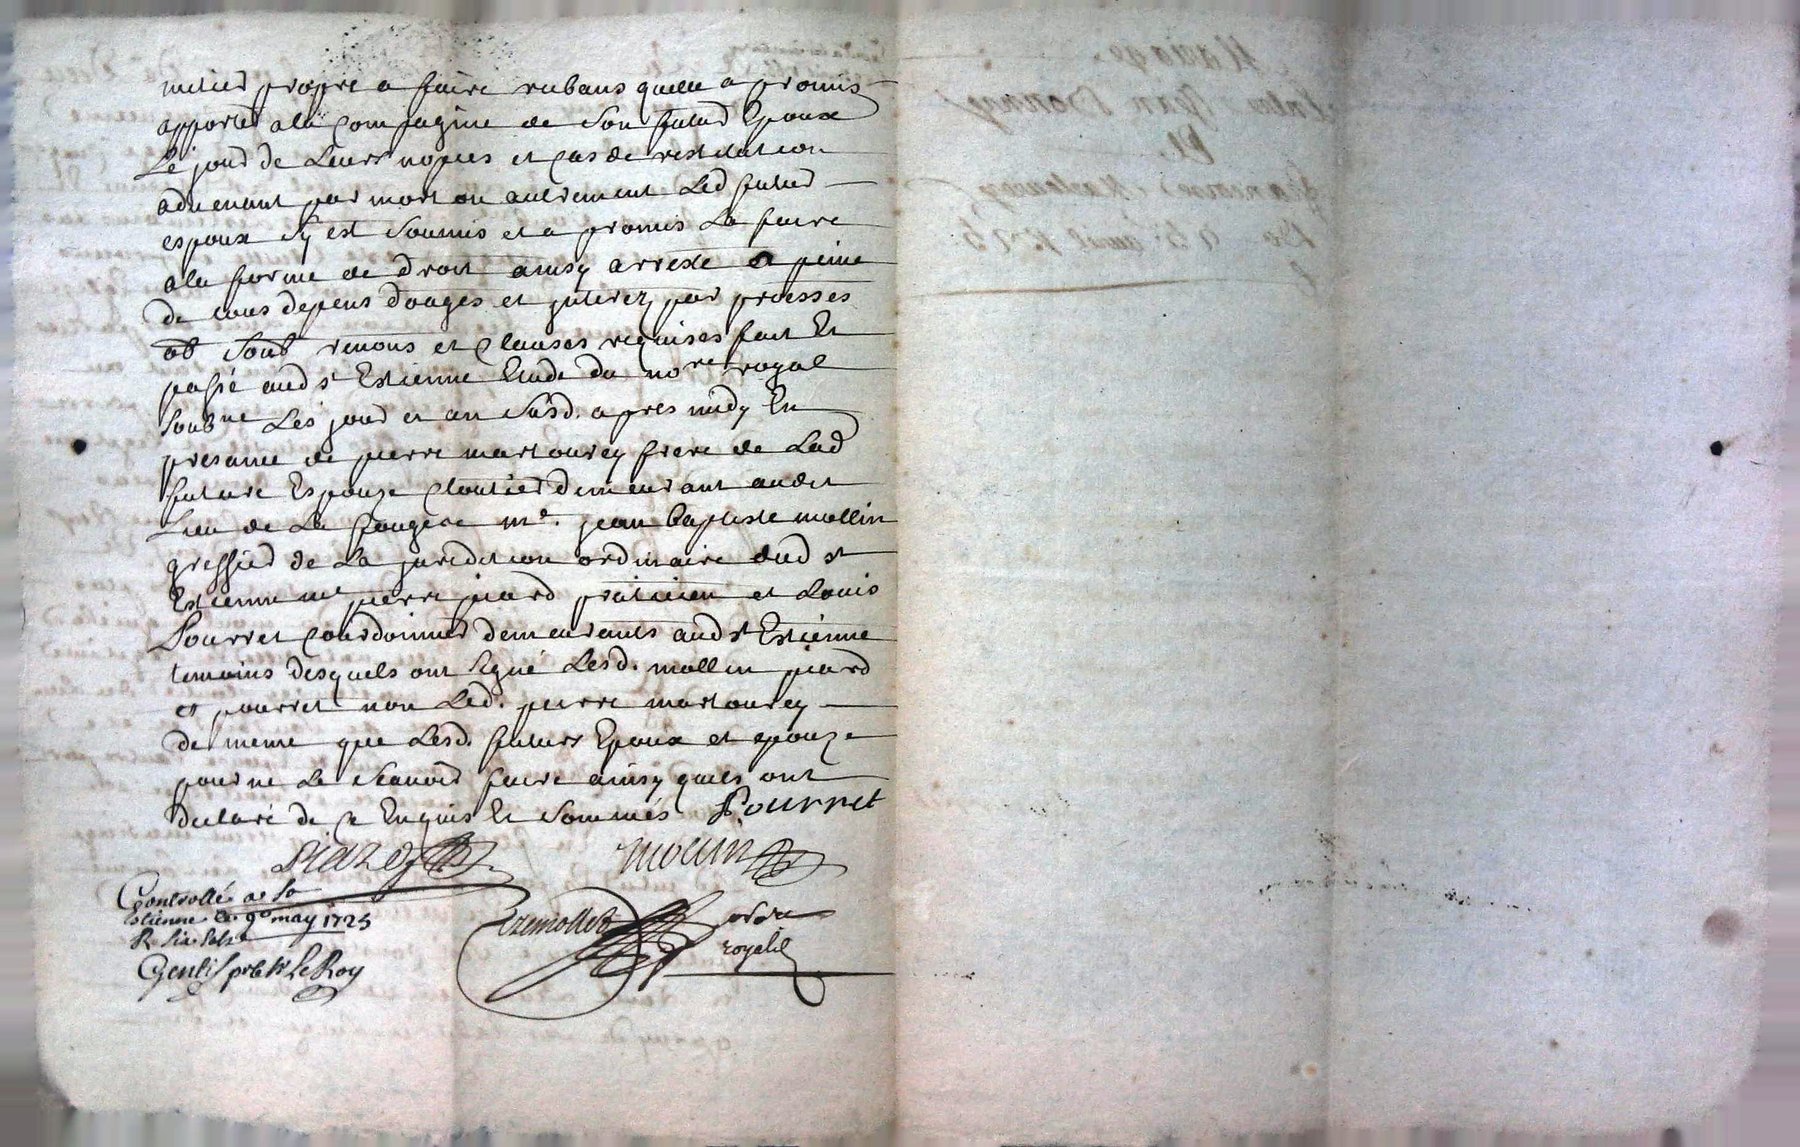 metier propre a faire rubans quelle a promis
apporter a la compagnie de son futur Epoux
Le jour de Leurs nopces et cas de restitution
advenant par mort ou autrement Led futur
espoux sy est soumis et a promis La faire
a la forme de droit ainsy arresté a peine
de tous depens domages et interez par
ob soub renons et clauses requises fait Et
passé aud st Estienne Etude du nore royal
soubne Les jour et an susd. apres midy En
presance de pierre martourey frere de Lad
future Espouze cloutier demeurant audit
Lieu de La fougere me. jean baptiste mollin
greffier de La juridition ordinaire dud st
Estienne me pierre piard praticien et Louis
Pourret courdonnier demeurants aud st Estienne
temoins desquels ont signé Lesd. mollin piard
et pourret non Led. pierre martourey
de meme que Lesd. futurs Epoux et epouze
pour ne Le scavoir faire ainsy quils ont
declaré de ce Enquis Et sommés Pourret
piard molin
Controllé a St
Estienne le 9e may 1725
R six
Gentil pr le Roy
royal
Mariage
Entre Jean
Et
Martourey
Du avril 1725